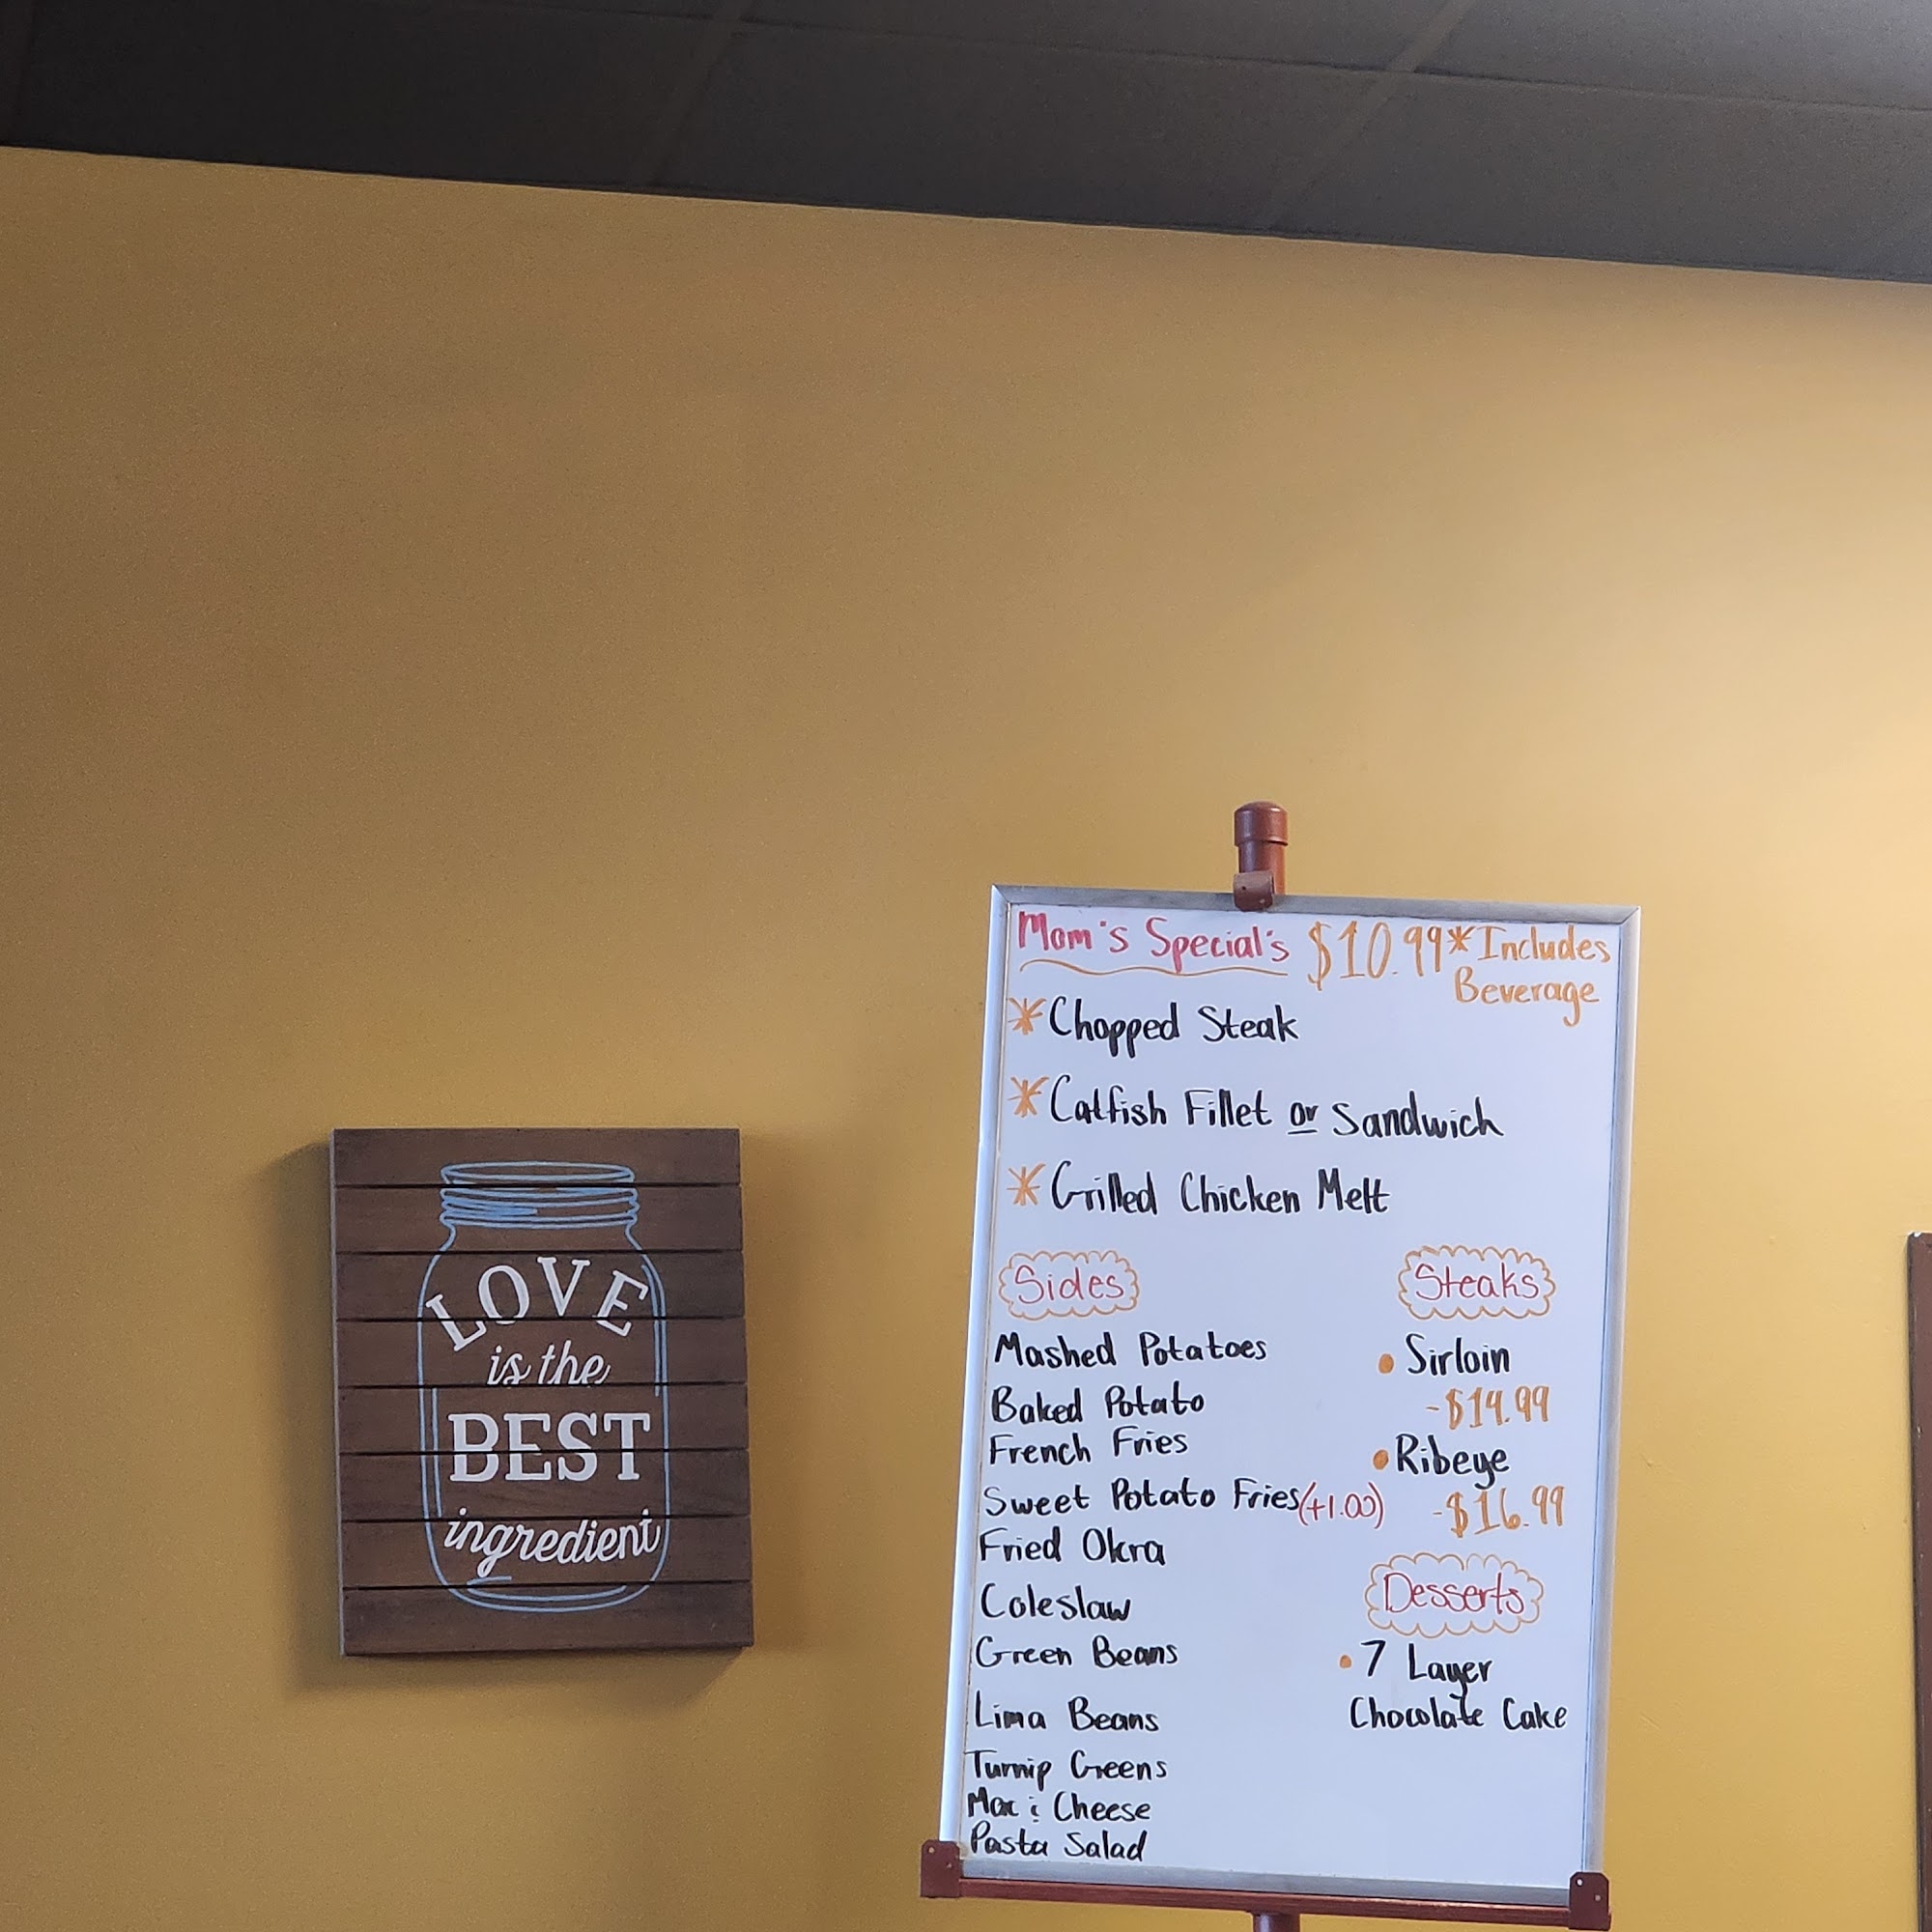 LOVE
is the
BEST
ingredient
Mom's Special's $10.99 *Includes
Beverage
*Chopped Steak
*Catfish Fillet or Sandwich
*Grilled Chicken Melt
Sides
Mashed Potatoes
Baked Potato
French Fries
Sweet Potato Fries (+1.00)
Fried Okra
Coleslaw
Green Beans
Lima Beans
Turnip Greens
Mac & Cheese
Pasta Salad
Steaks
• Sirloin
-$14.99
• Ribeye
-$16.99
Desserts
• 7 Layer
Chocolate Cake